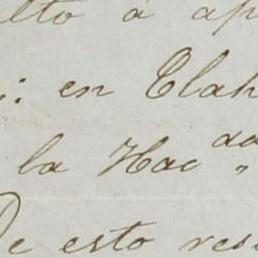 ulto á ap
: en Elah
la Hac da
De esto res